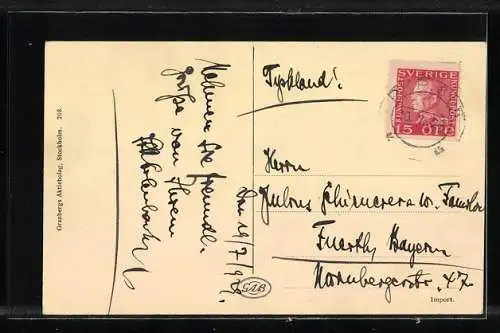 Granbergs Aktiebolag, Stockholm. 298.
Nehmen Sie freundl.
Grüße von Ihrem
Den 19/7/
GAB
Tyskland!
SVERIGE
15 ÖRE
Herrn
Julius u. Familie
Fuerth, Bayern
Nornbergerstr. 47
Import.